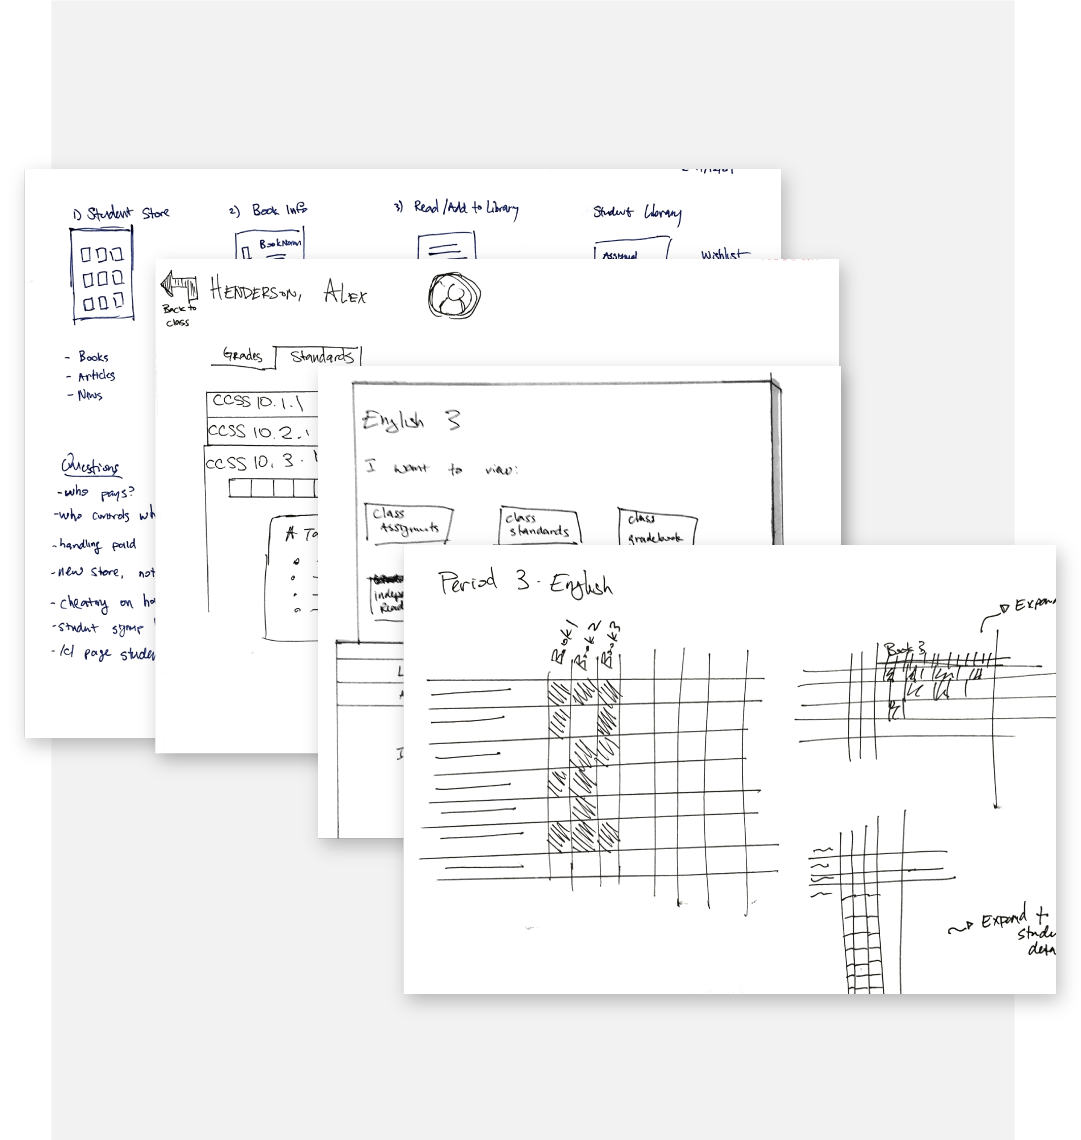 1) Student Store
2) Book Info
3) Read/Add to Library
Student Library
Book Name
Assigned
Wishlist
- Books
- Articles
- News
Questions
- who pays?
- who controls wh
- handling paid
- new store, not
- cheating on ho
- student signup
page studen
Back to
class
HENDERSON, ALEX
Grades
Standards
CCSS 10.1.1
CCSS 10.2.1
CCSS 10.3.
# To
English 3
I want to view:
class
Assignments
class
standards
class
gradebook
indepe
Read
L
I
Period 3 - English
Book 1
Book 2
Book 3
Expan
Book 3
Expand +
stude
deta